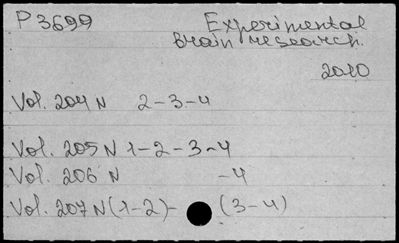 P3699 Experimental
Brain research.
2010
Vol. 204 N 2-3-4
Vol. 205 N 1-2-3-4
Vol. 206 N -4
Vol. 207 N (1-2)- (3-4)